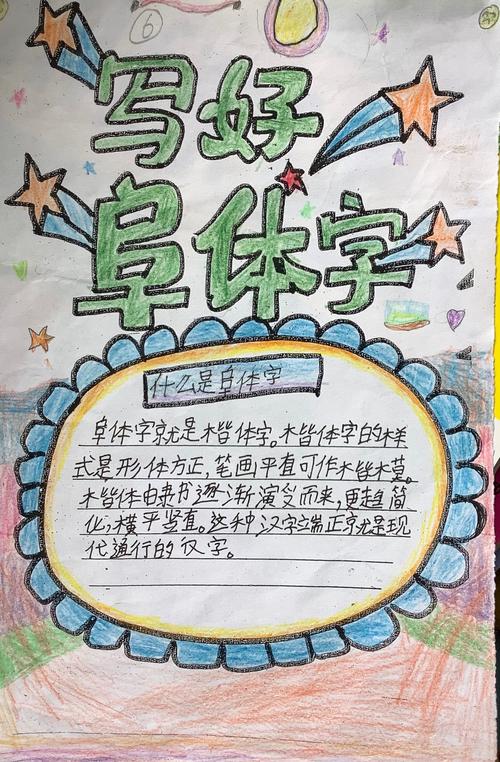 ⑥
写好
阜体字
什么是阜体字
阜体字就是楷体字。楷体字的样
式是形体方正,笔画平直可作楷模。
楷体由隶书逐渐演变而来,更趋简
化,横平竖直。这种汉字端正就是现
代通行的汉字。